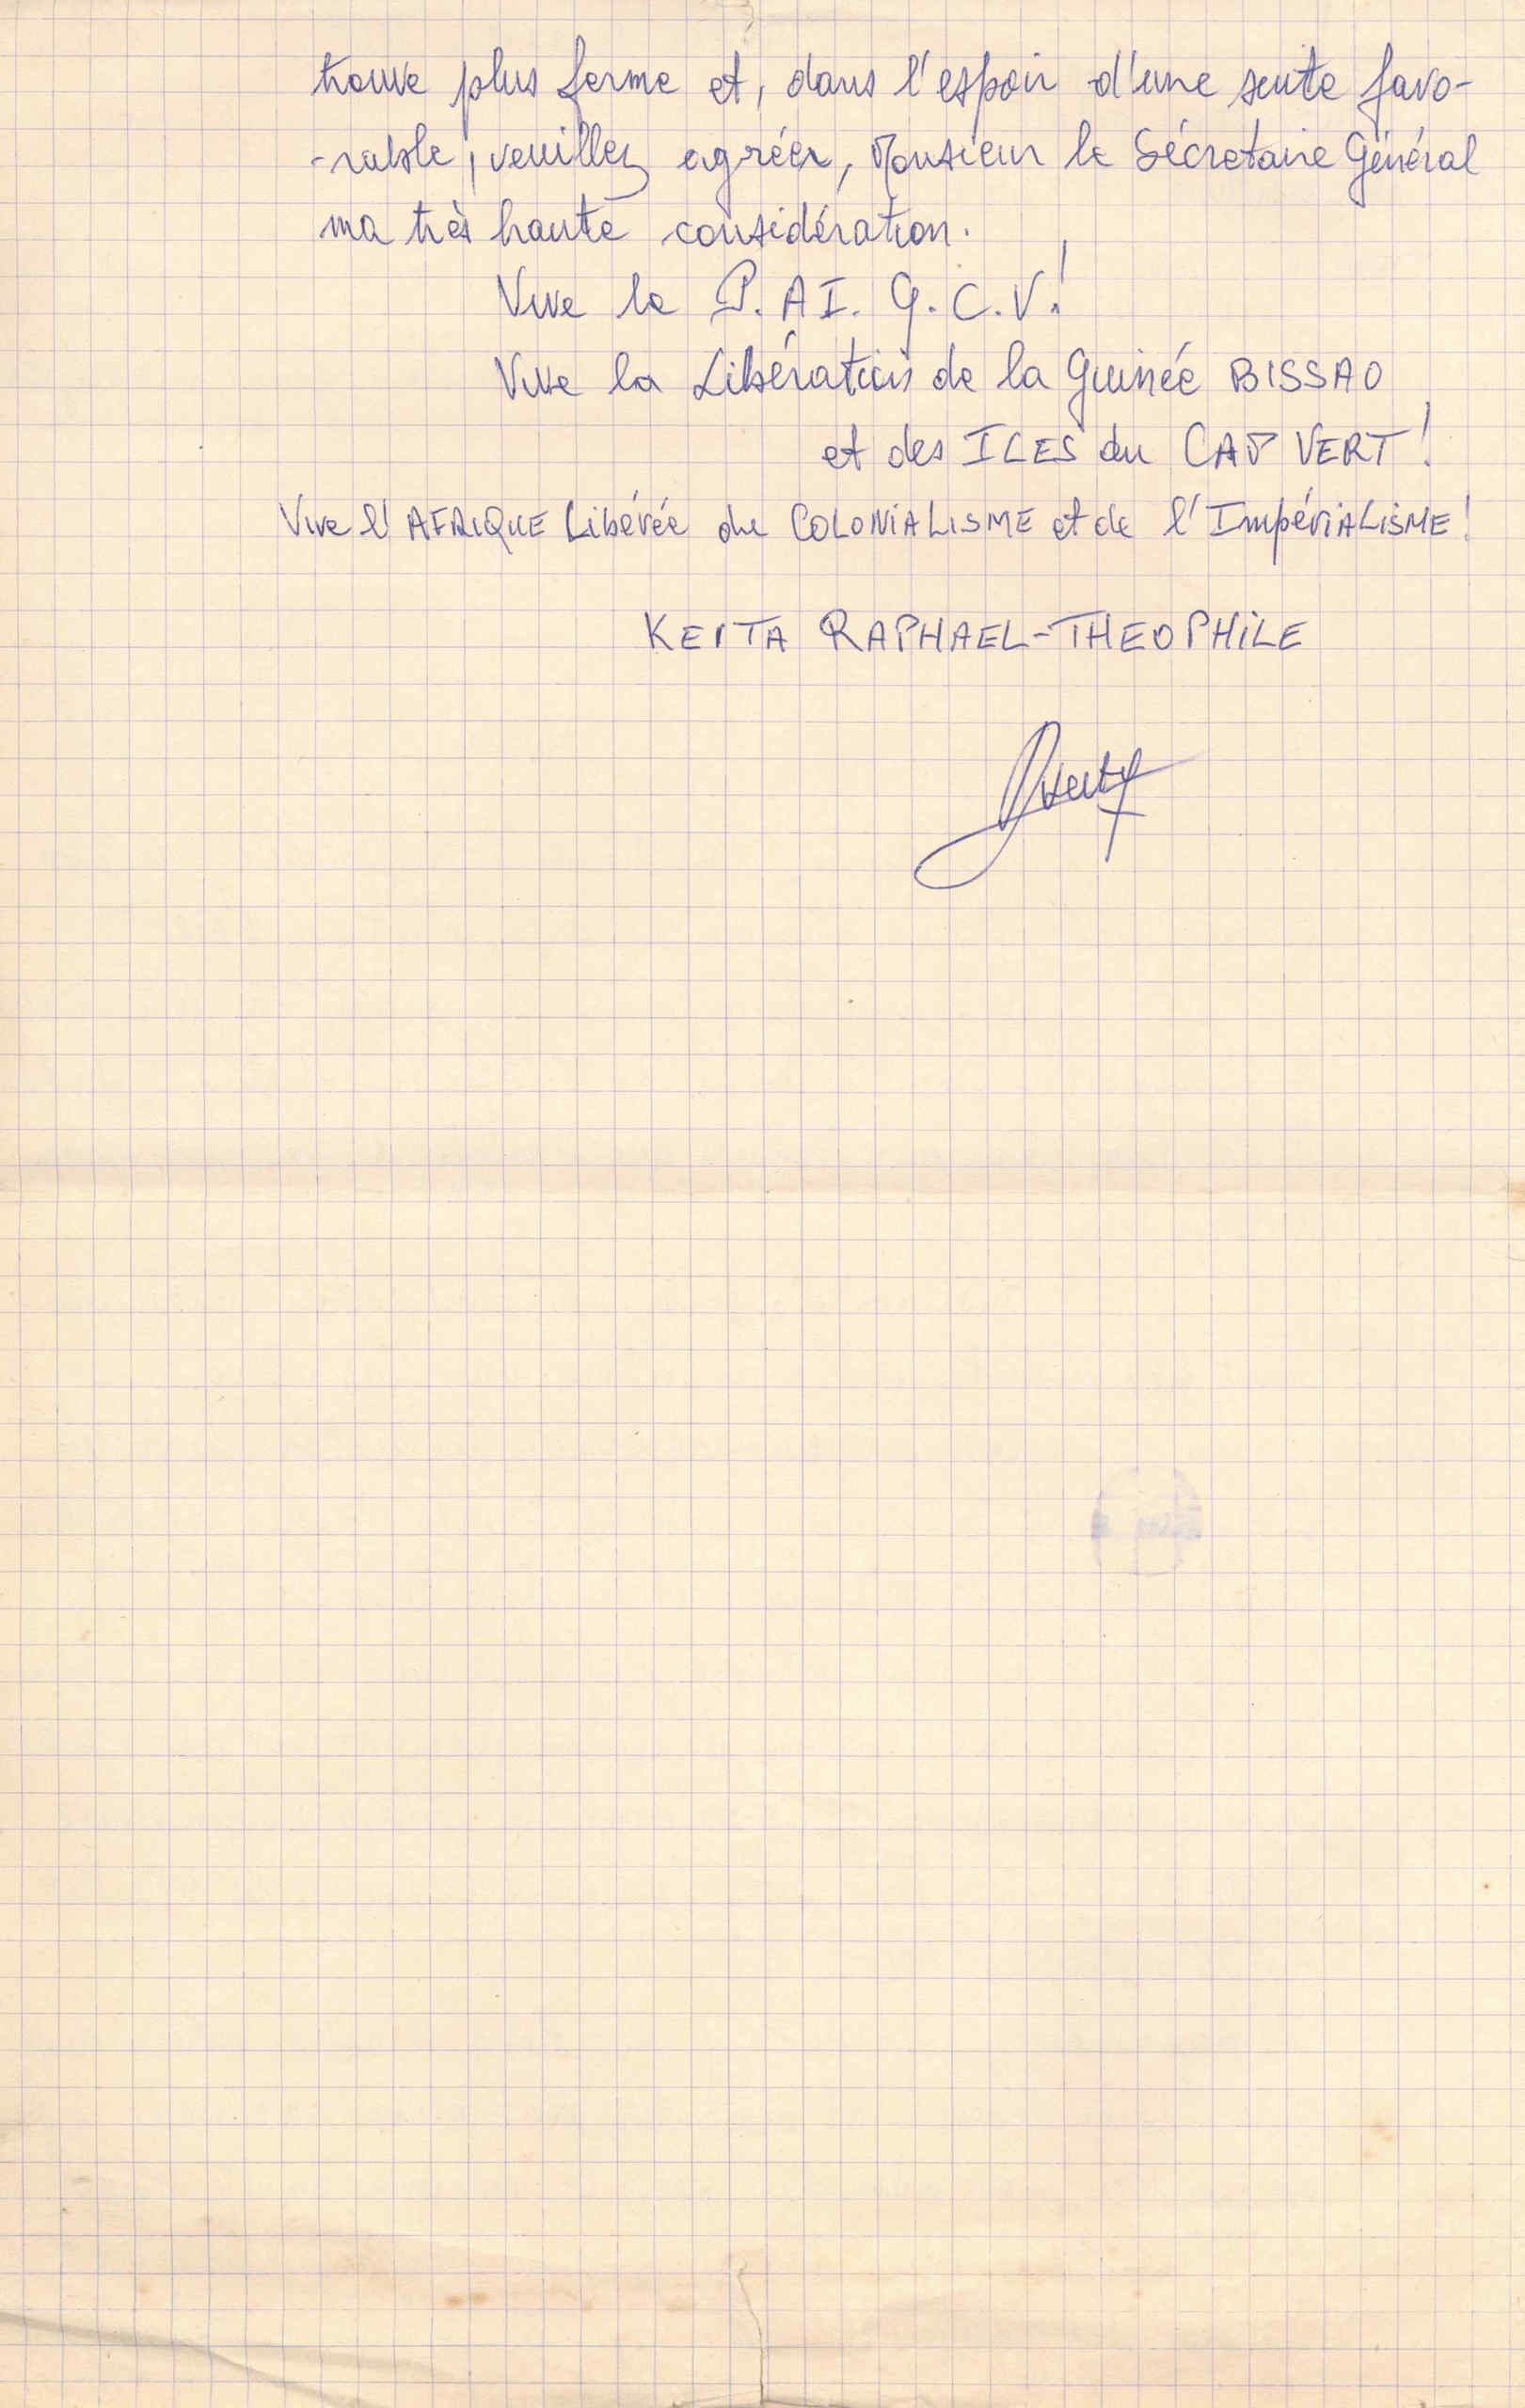 trouve plus ferme et, dans l'espoir d'une suite favo-
-rable, veuillez agréer, Monsieur le Sécretaire Général
ma très haute considération.
Vive le P. A I. G. C. V.!
Vive la Libération de la Guinée BISSAO
et des ILES du CAP VERT!
Vive l'AFRIQUE Libérée du COLONIALISME et de l'ImpériALiSME!
KEITA RAPHAEL-THEOPHILE